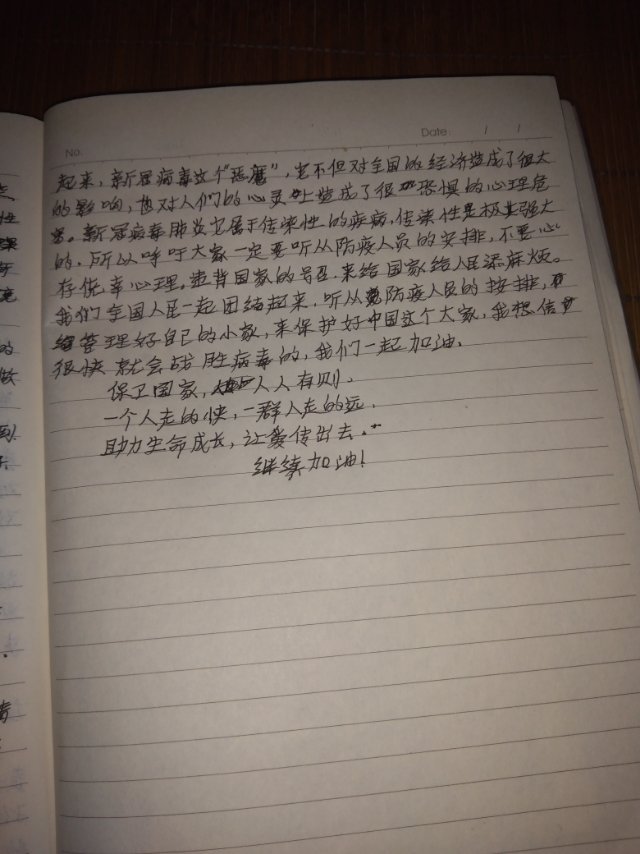 No:
Date: / /
起来,新冠病毒这个“恶魔”,它不但对全国的经济造成了很大
的影响,也对人们的心灵上造成了很大恐惧的心理危
害。新冠病毒肺炎它属于传染性的疾病,传染性是极其强大
的,所以呼吁大家一定要听从防疫人员的安排,不要心
存侥幸心理,违背国家的号召,来给国家给人民添麻烦。
我们全国人民一起团结起来,听从防疫人员的按排,
管理好自己的小家,来保护好中国这个大家,我想信
很快就会战胜病毒的,我们一起加油。
保卫国家,人人有则.
一个人走的快,一群人走的远.
助力生命成长,让爱传出去.
继续加油!